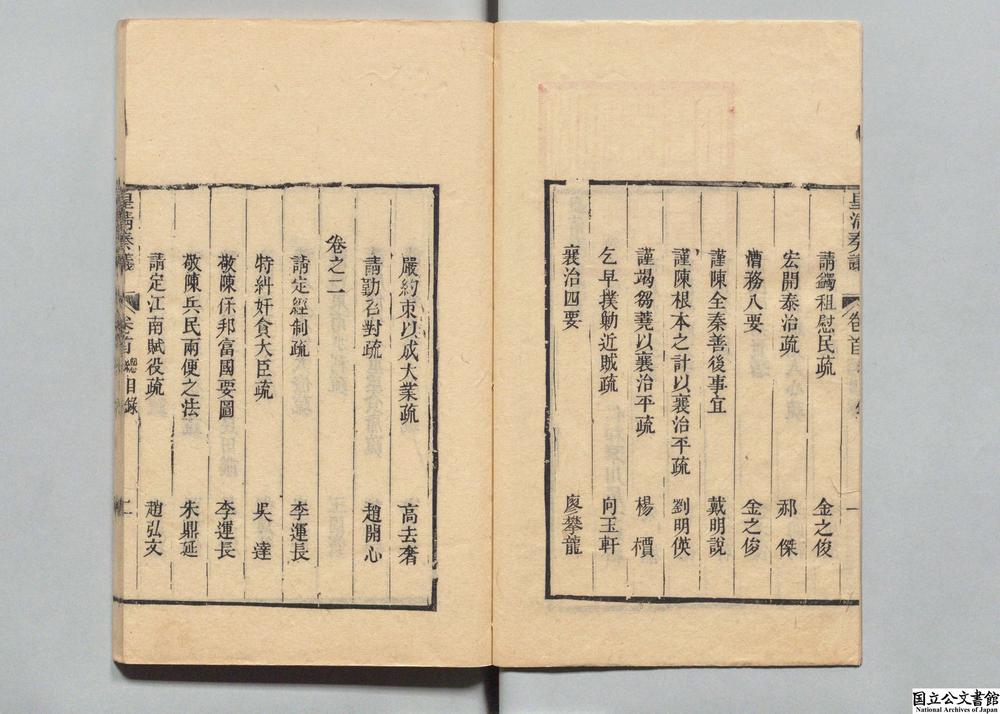 皇清奏議 卷首
請蠲租慰民疏 金之俊
宏開泰治疏 郝傑
漕務八要 金之俊
謹陳全秦善後事宜 戴明說
謹陳根本之計以襄治平疏 劉明偀
謹竭芻蕘以襄治平疏 楊檟
乞早撲勦近賊疏 向玉軒
襄治四要 廖攀龍
嚴約束以成大業疏 高去奢
請勤召對疏 趙開心
卷之二
請定經制疏 李運長
特糾奸貪大臣疏 吳達
敬陳保邦富國要圖 李運長
敬陳兵民兩便之法 朱鼎延
請定江南賦役疏 趙弘文
皇清奏議 卷首 總目錄 二
国立公文書館
National Archives of Japan